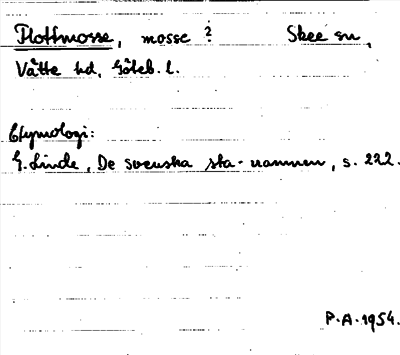 Plottmosse, mosse ? Skee sn,
Vätte hd, Göteb. l.
Etymologi:
G. Linde, De svenska sta-namnen, s. 222.
P.A. 1954.